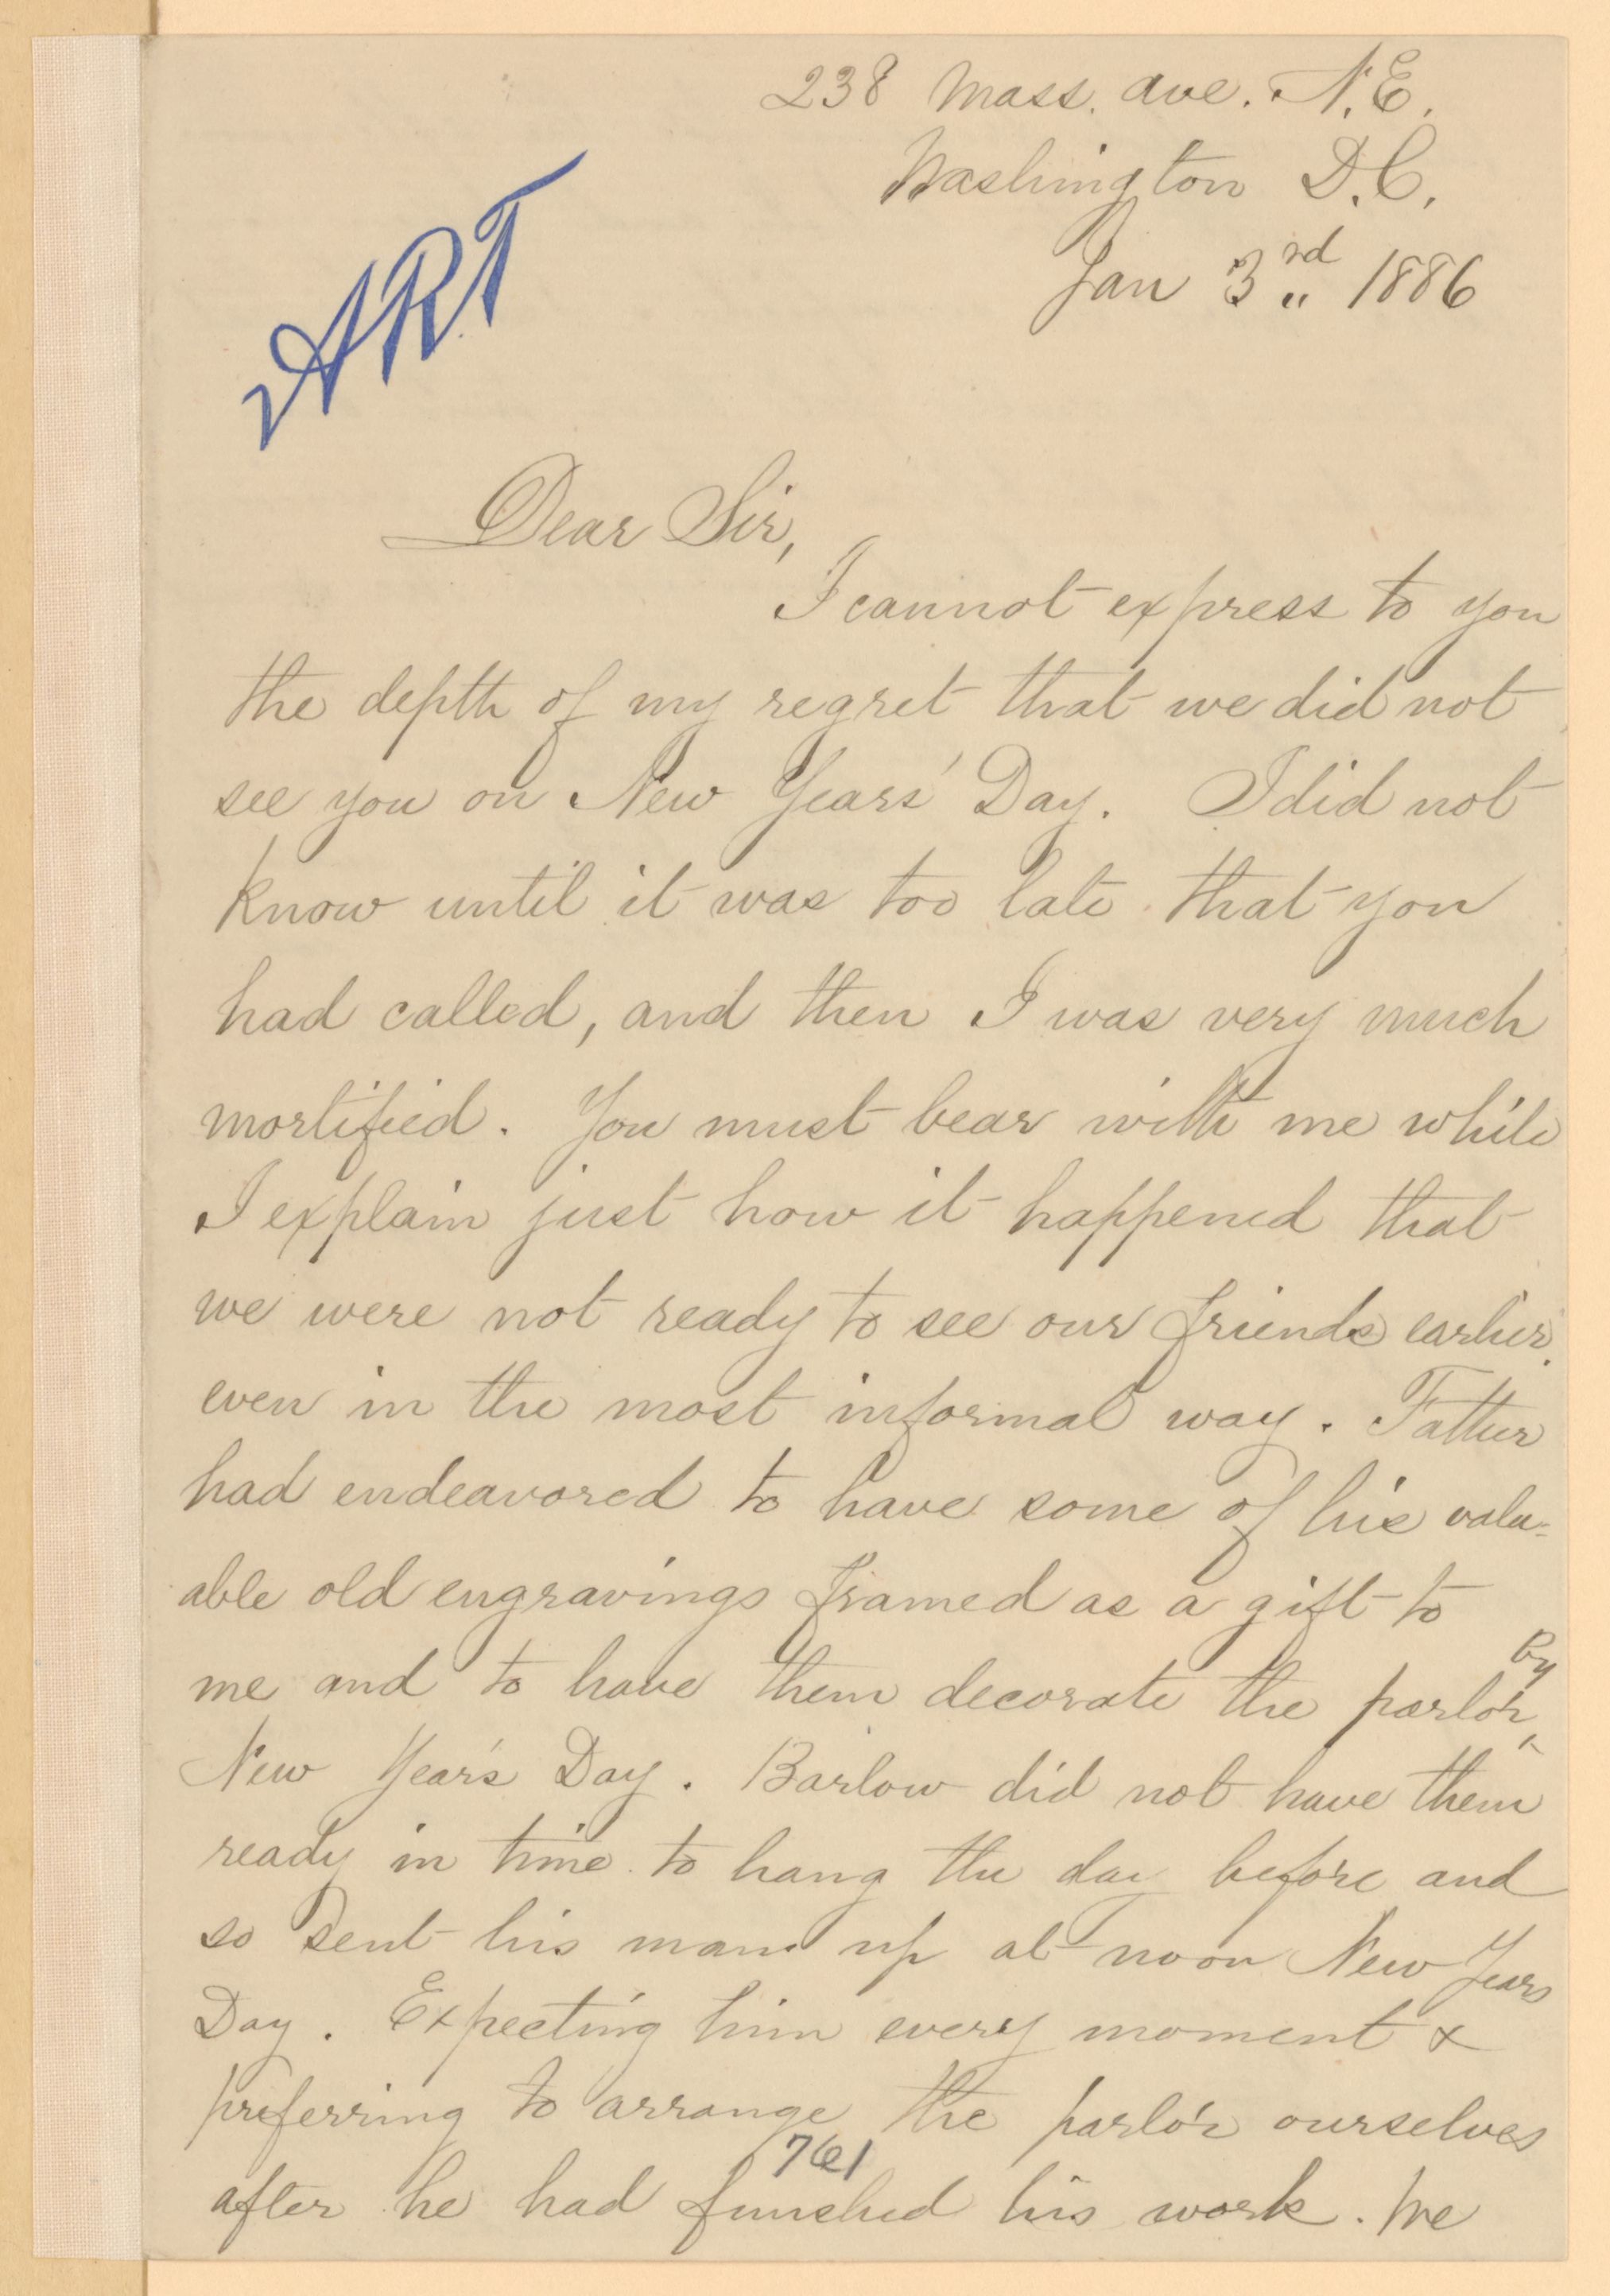 238 Mass. Ave. N.E.
Washington D.C.
Jan 3rd 1886
ART
Dear Sir,
I cannot express to you
the depth of my regret that we did not
see you on New Years' Day. I did not
know until it was too late that you
had called, and then I was very much
mortified. You must bear with me while
I explain just how it happened that
we were not ready to see our friends earlier,
even in the most informal way. Father
had endeavored to have some of his valu-
able old engravings framed as a gift to
me and to have them decorate the parlor by
New Year's Day. Barlow did not have them
ready in time to hang the day before and
so sent his man up at noon New Years
Day. Expecting him every moment &
preferring to arrange the parlor ourselves
761
after he had finished his work. We